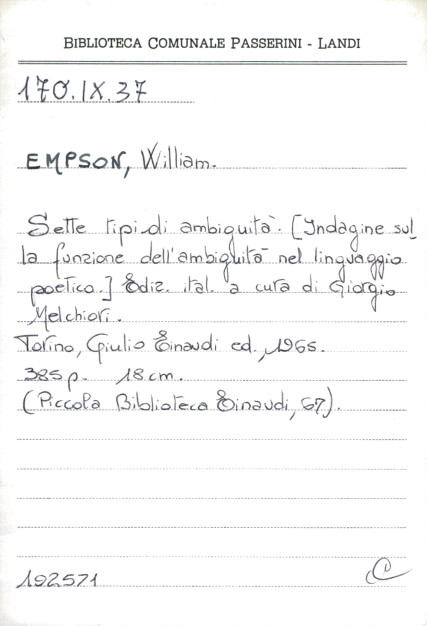 BIBLIOTECA COMUNALE PASSERINI - LANDI
170.IX.37
EMPSON, William.
Sette tipi di ambiguità. [Indagine sul
la funzione dell'ambiguità nel linguaggio
poetico.] Ediz. ital. a cura di Giorgio
Melchiori.
Torino, Giulio Einaudi ed., 1965.
385 p. 18 cm.
(Piccola Biblioteca Einaudi, 67).
192571